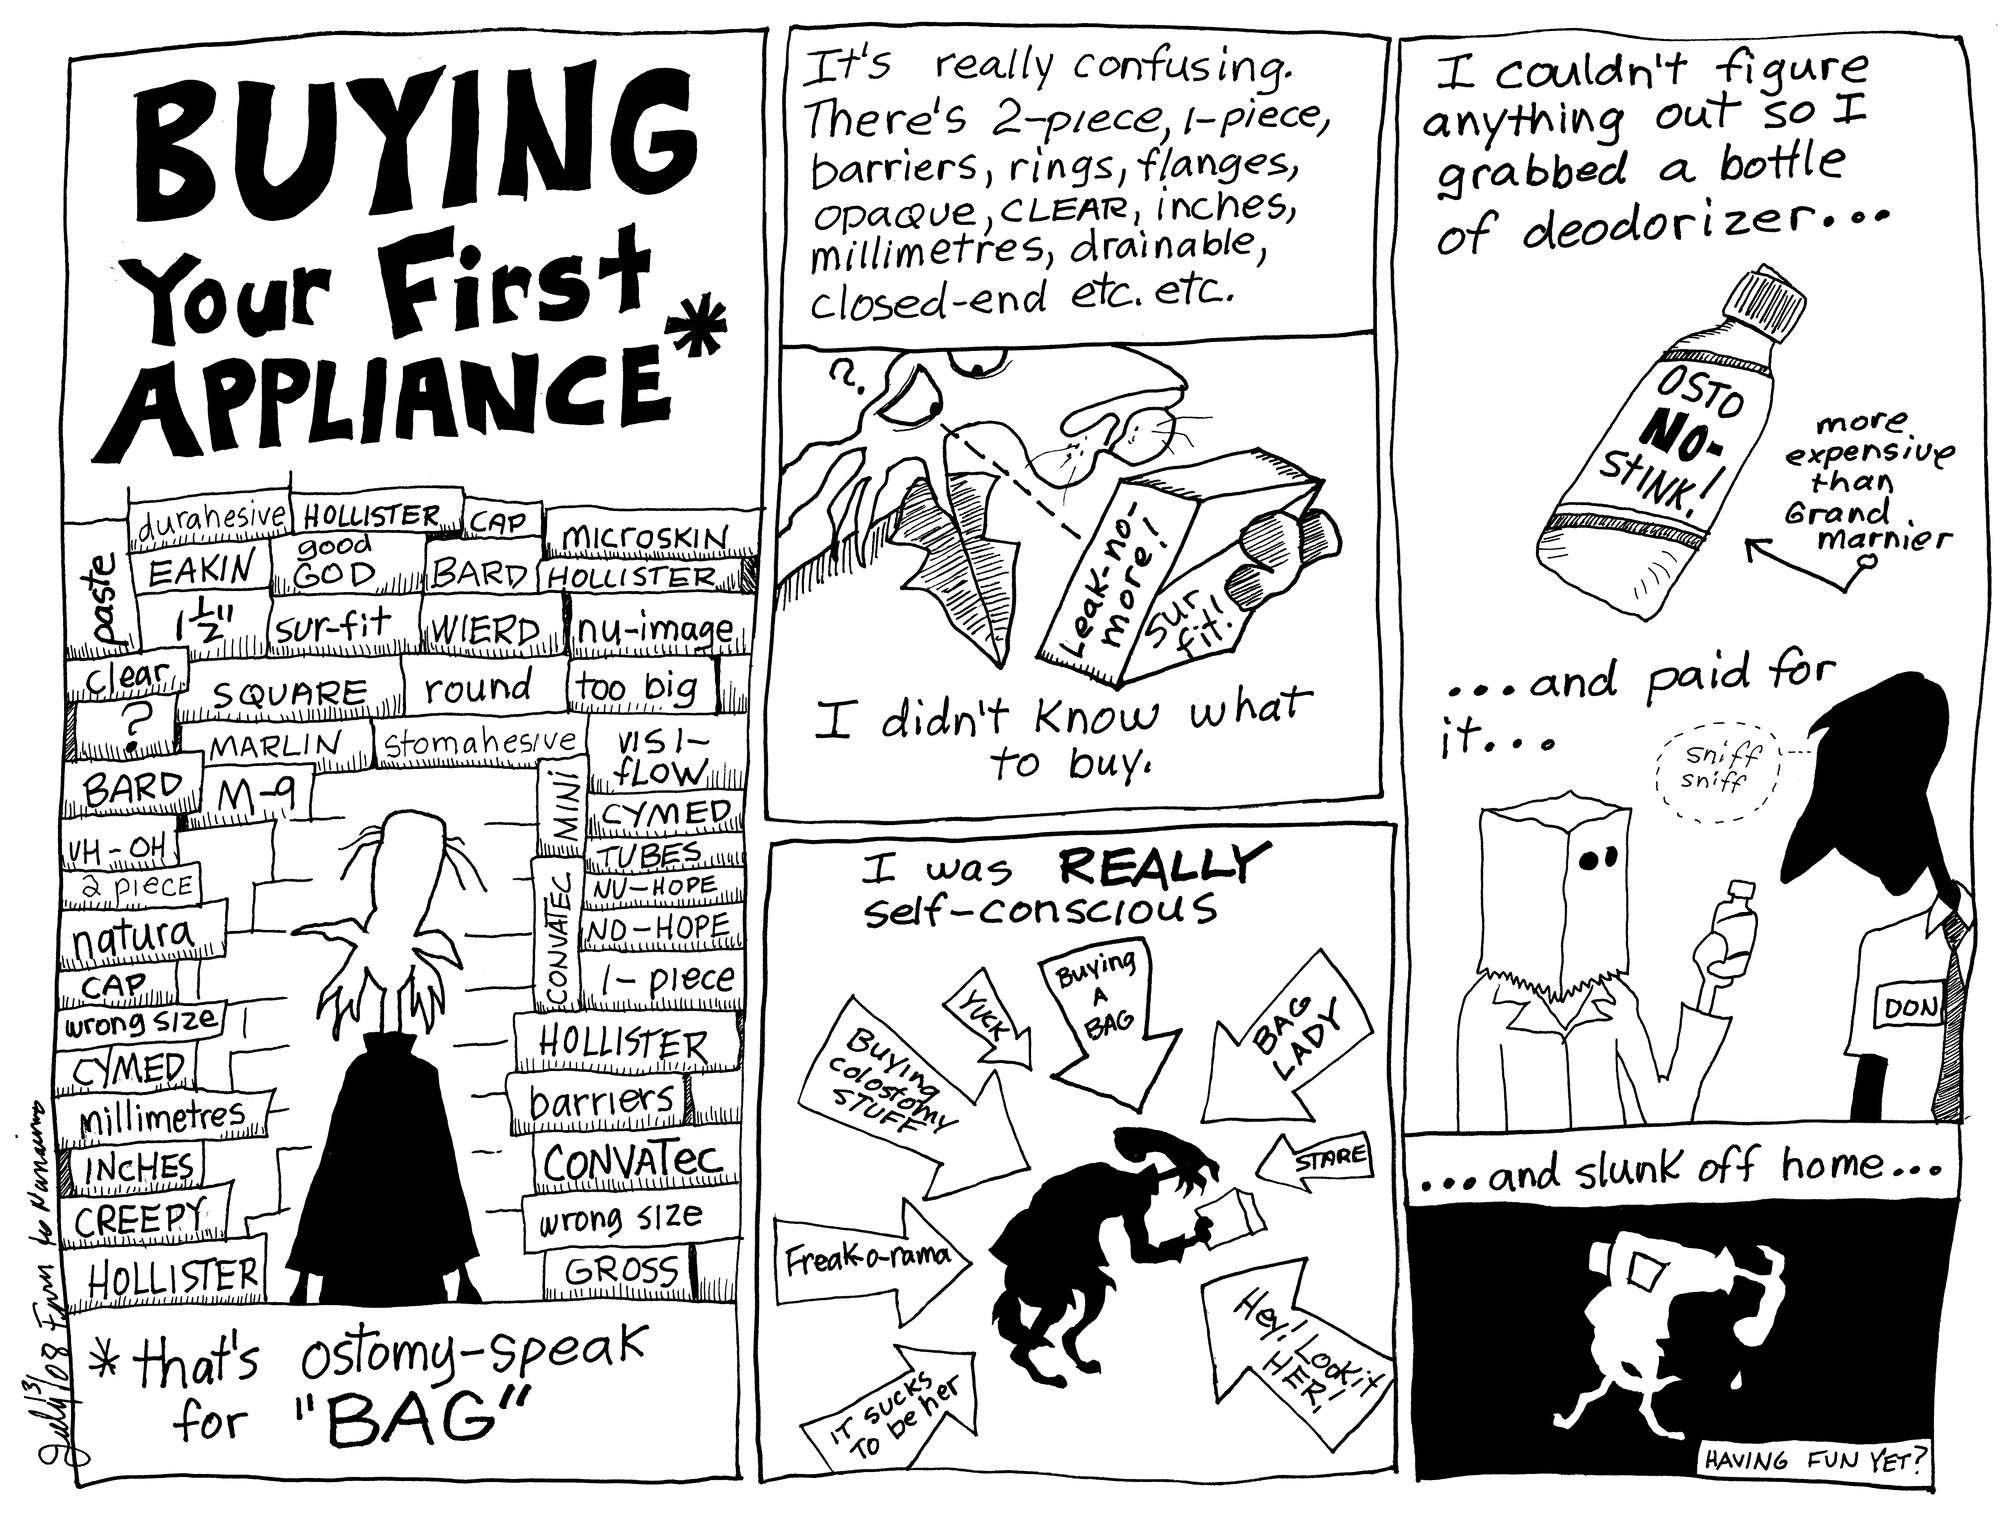 BUYING
Your First
APPLIANCE*
durahesive
HOLLISTER
CAP
MICROSKIN
paste
EAKIN
good
GOD
BARD
HOLLISTER
1 1/2"
sur-fit
WIERD
nu-image
clear
SQUARE
round
too big
?
MARLIN
stomahesive
VISI-
FLOW
BARD
M-9
MINI
CYMED
UH-OH
TUBES
2 PIECE
CONVATEC
NU-HOPE
natura
NO-HOPE
CAP
1-piece
wrong size
HOLLISTER
CYMED
barriers
millimetres
INCHES
CONVATEC
CREEPY
wrong size
HOLLISTER
GROSS
* that's ostomy-speak
for "BAG"
It's really confusing.
There's 2-piece, 1-piece,
barriers, rings, flanges,
opaque, CLEAR, inches,
millimetres, drainable,
closed-end etc. etc.
?
Leak-no-
more!
sur
fit!
I didn't know what
to buy.
I was REALLY
self-conscious
YUCK
Buying
A
BAG
BAG
LADY
Buying
colostomy
STUFF
STARE
Freak-o-rama
Hey! Look it
HER!
IT SUCKS
TO be her
I couldn't figure
anything out so I
grabbed a bottle
of deodorizer...
OSTO
NO-
STINK!
more
expensive
than
Grand
marnier
...and paid for
it...
sniff
sniff
DON
...and slunk off home...
HAVING FUN YET?
July 31/08 Ferry to Nanaimo